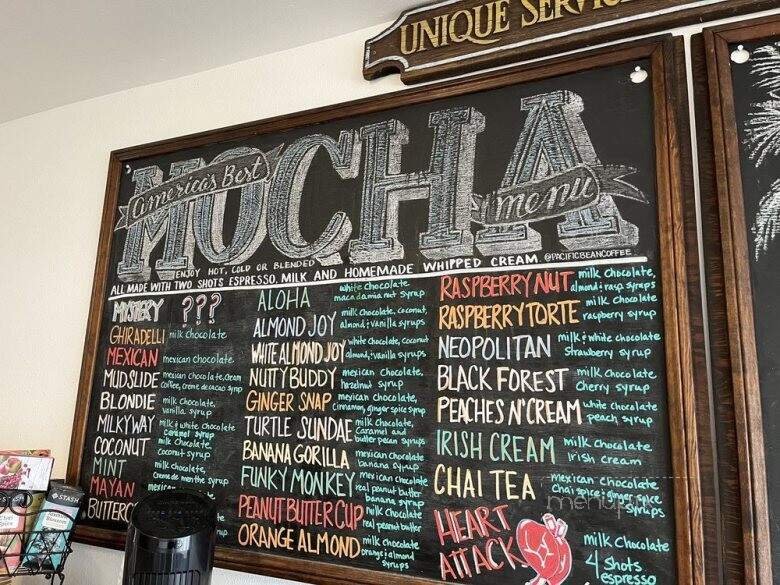 UNIQUE SERVI
America's Best
MOCHA
menu
ENJOY HOT, COLD OR BLENDED
@PACIFICBEANCOFFEE
ALL MADE WITH TWO SHOTS ESPRESSO, MILK AND HOMEMADE WHIPPED CREAM
MYSTERY ???
GHIRADELLI milk chocolate
MEXICAN mexican chocolate
MUDSLIDE mexican chocolate, cream
coffee, creme de cacao syrup
BLONDIE milk chocolate,
vanilla syrup
MILKYWAY milk & white chocolate
Caramel syrup
COCONUT milk chocolate,
Coconut syrup
MINT milk chocolate,
Creme de menthe syrup
MAYAN mexican
BUTTERC
ALOHA white chocolate
macadamia nut syrup
ALMOND JOY milk chocolate, coconut,
almond & vanilla syrups
WHITE ALMOND JOY white chocolate, coconut
almond & vanilla syrups
NUTTY BUDDY mexican chocolate,
hazelnut syrup
GINGER SNAP mexican chocolate,
cinnamon, ginger spice syrup
TURTLE SUNDAE milk chocolate,
Caramel and
butter pecan syrups
BANANA GORILLA mexican chocolate
banana syrup
FUNKY MONKEY mexican chocolate
real peanut butter
banana syrup
PEANUT BUTTER CUP milk chocolate
real peanut butter
ORANGE ALMOND milk chocolate
orange & almond
syrups
RASPBERRY NUT milk chocolate,
almond & rasp. syrups
RASPBERRY TORTE milk chocolate
raspberry syrup
NEOPOLITAN milk & white chocolate
Strawberry syrup
BLACK FOREST milk chocolate
cherry syrup
PEACHES N' CREAM white chocolate
peach syrup
IRISH CREAM milk chocolate
irish cream
CHAI TEA mexican chocolate
chai spice & ginger spice
syrups
HEART
ATTACK milk chocolate
4 shots
espresso
STASH